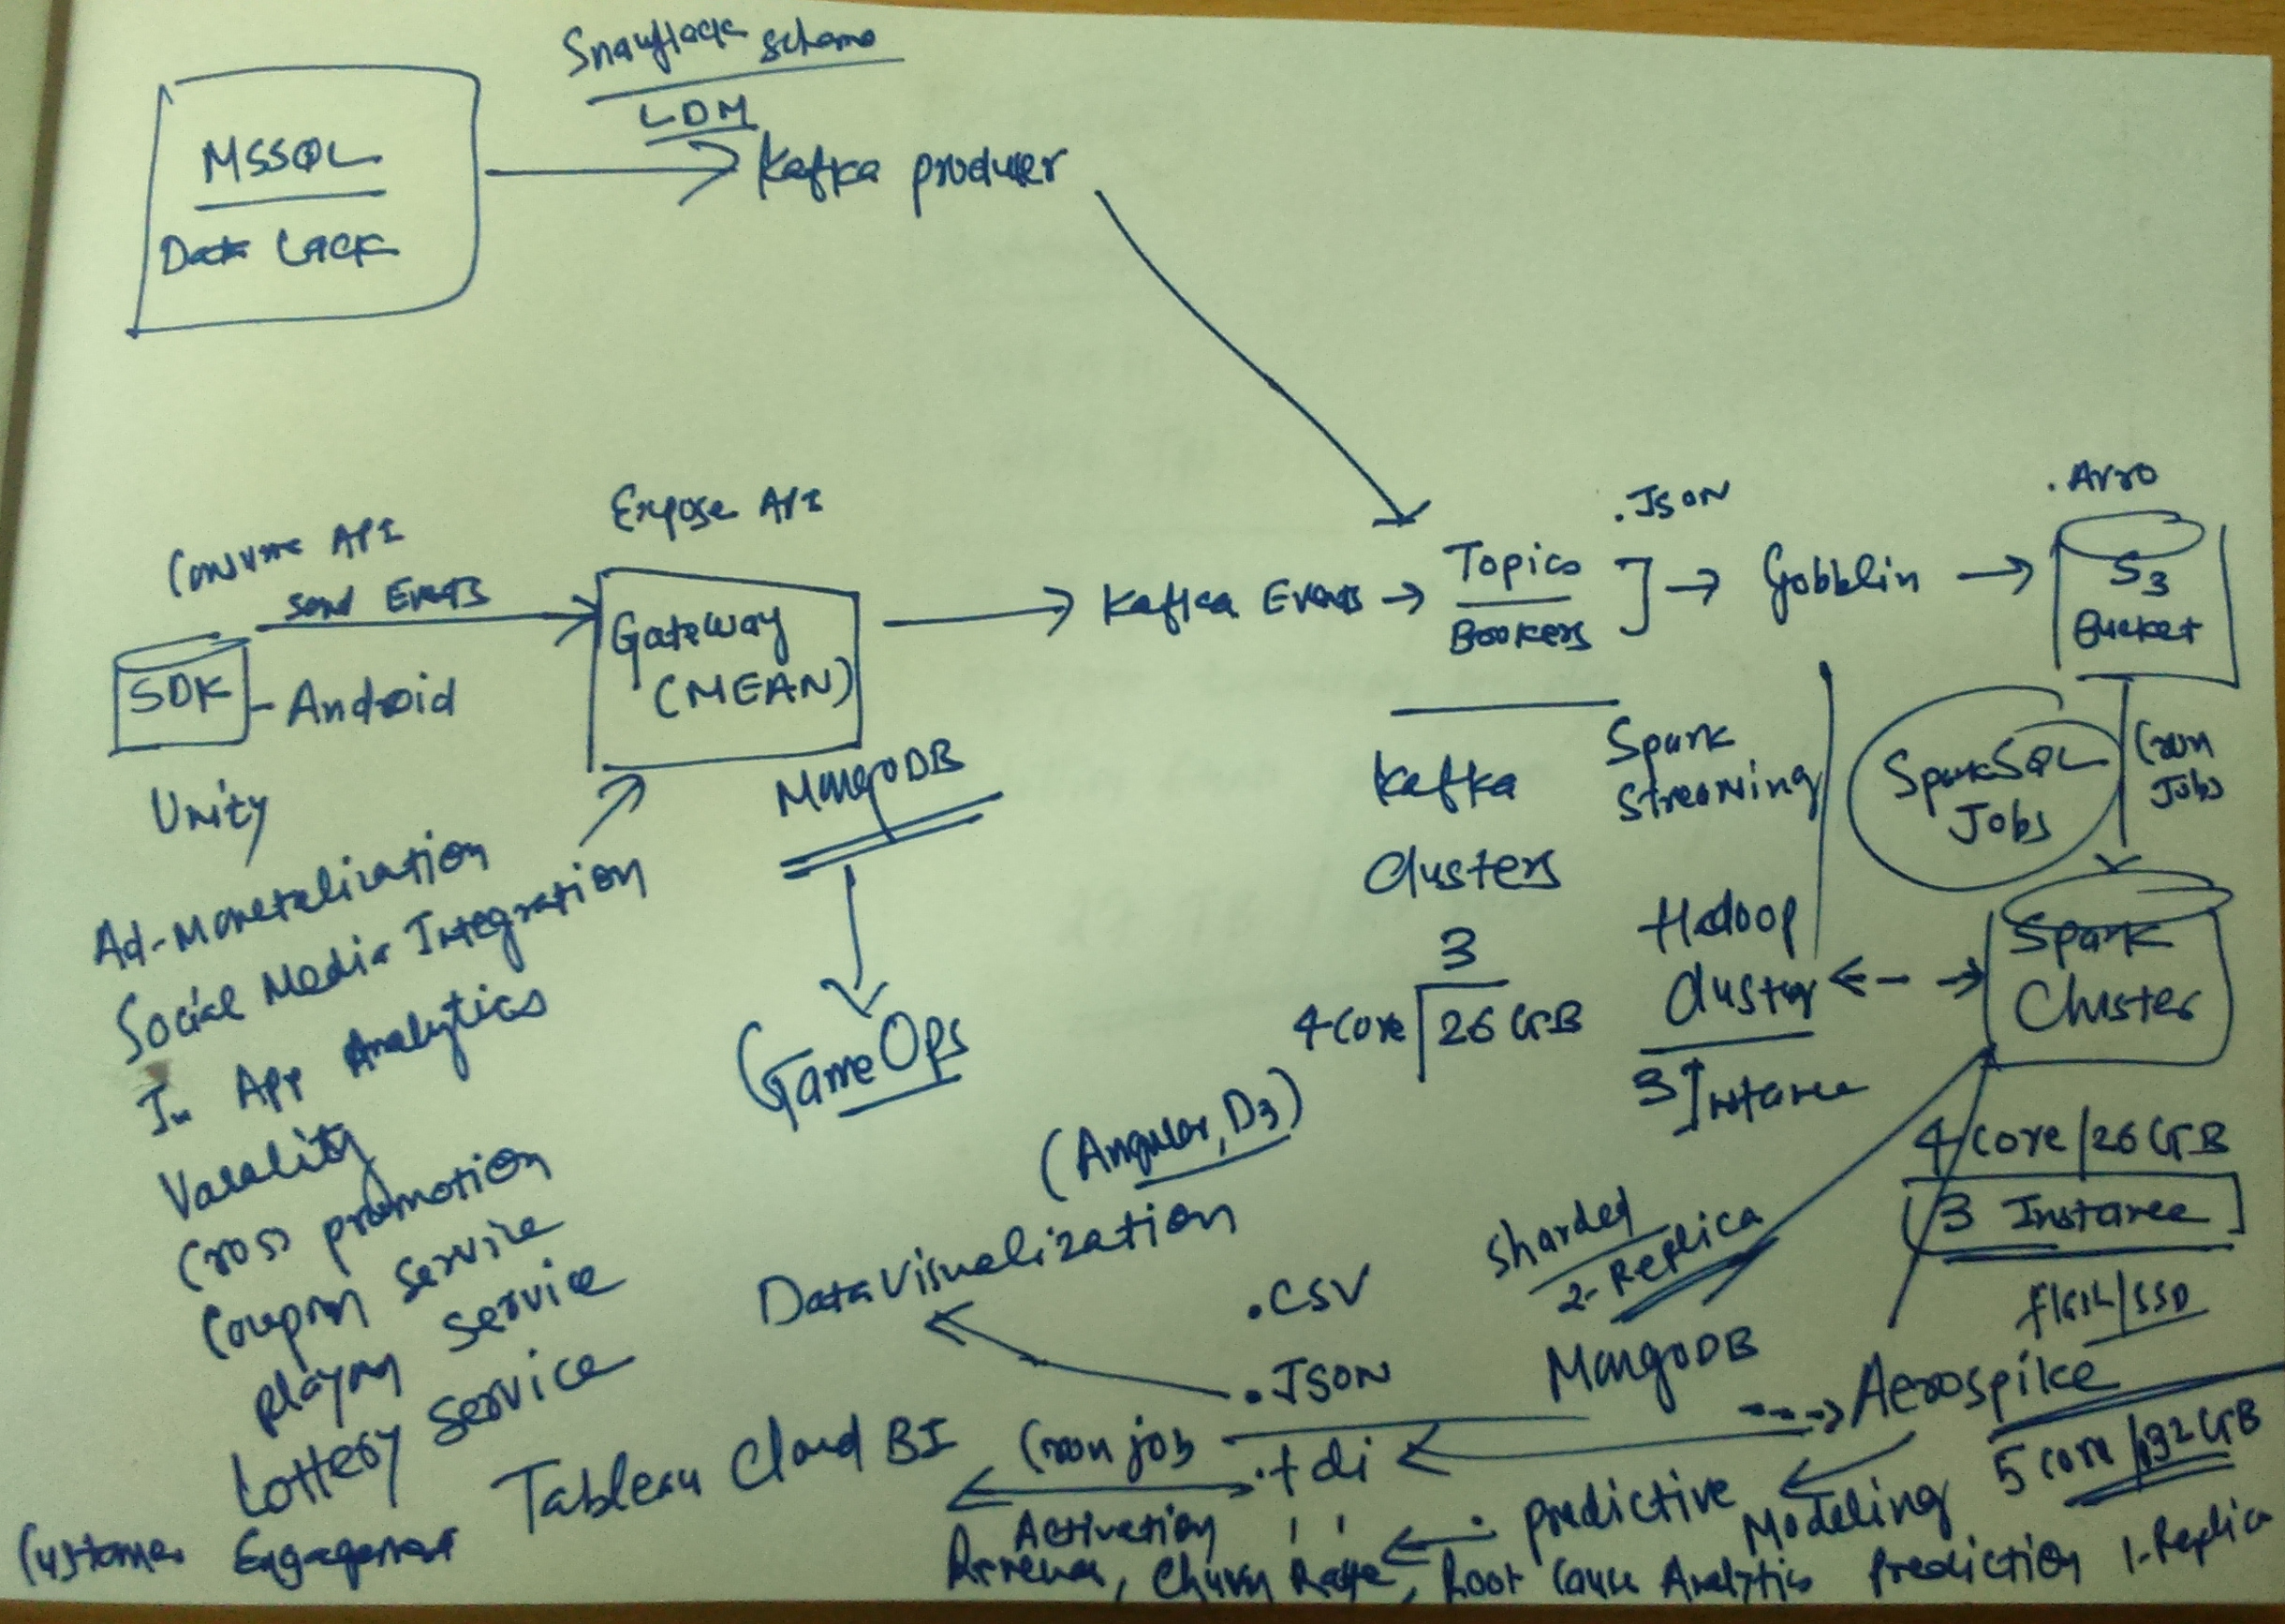 Snawflack schema
LDM
MSSQL
Data Lack
Kafka producer
Consume API
Send Events
Expose API
SDK - Android
Unity
Gateway
(MEAN)
MongoDB
GameOps
Kafka Events
Topics
Bookers
.JSON
Gobblin
.Avro
S3
Bucket
Kafka
Clusters
3
4 core 26 GB
Spark
Streaming
SparkSQL
Jobs
Cron
Jobs
Hadoop
Cluster
3 Instance
Spark
Cluster
4 core/26 GB
3 Instance
Ad-Monetalization
Social Media Integration
In App Analytics
Varality
Cross promotion
Coupon Service
Service
Lottery Service
Customer Engagement
(Angular, D3)
Data Visualization
.CSV
.JSON
.tdi
Sharded
2-Replica
MongoDB
flash/SSD
Aerospike
5 core/132 GB
1-Replica
Tableau Cloud BI
Cron job
Activation
Revenue, Churn Rate, Root Cause Analytics Prediction
predictive
Modeling